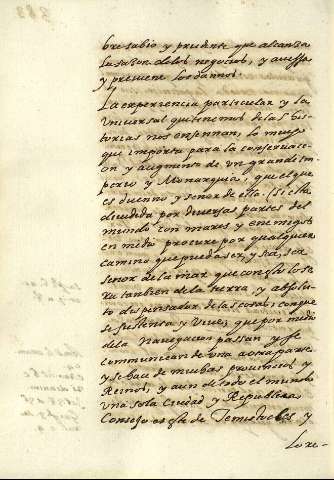 bre sabio y prudente que alcanza
la sazon de los negocios, y avissa
y previene los daños.
La experiencia particular y la
universal que tenemos de las his
torias nos enseñan, lo mucho
que importa para la conservaci
on y augmento de un grande im
perio y Monarquia, que el que
es dueño y señor de ella (si esta
dividida por diversas partes del
mundo con mares y enemigos
en medio procure por qualquier
camino que pueda ser, y sea, sea
señor de la mar que con esto lo se
ra tambien de la tierra, y absolu
to dispensador de las cosas, con que
se sustenta y vive, que por medio
de la navegacion passan y se
communican de una a otra parte
y se hace de muchas provincias y
Reinos, y aun de todo el mundo
una sola Ciudad y Republica
Consejo es este de Temistocles y